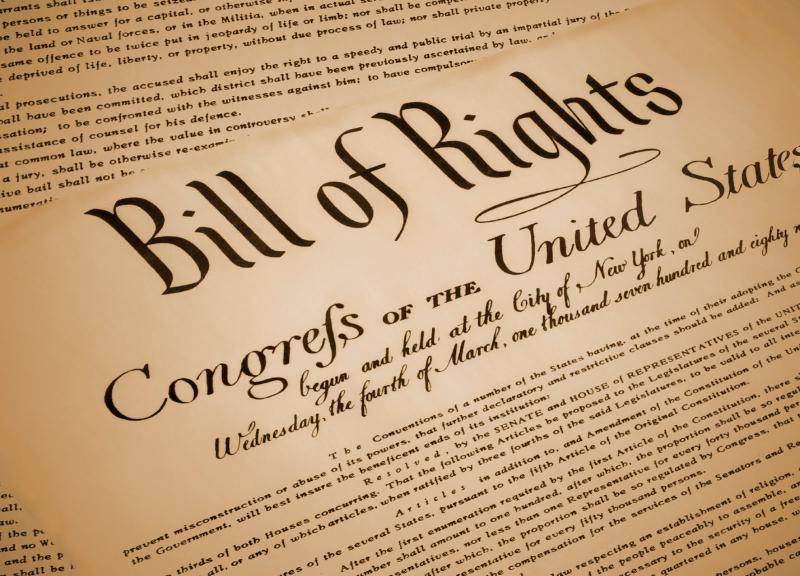 arrants shall
persons or things to be seized
be held to answer for a capital, or otherwise
the land or Naval forces, or in the Militia, when in actual
same offence to be twice put in jeopardy of life or limb; nor shall be
deprived of life, liberty, or property, without due process of law; nor shall private property
al prosecutions, the accused shall enjoy the right to a speedy and public trial by an impartial jury of the
all have been committed, which district shall have been previously ascertained by law, an
sation; to be confronted with the witnesses against him; to have compulsor
ssistance of counsel for his defence.
at common law, where the value in controversy shall
a jury, shall be otherwise re-exami
ive bail shall not be
numerati
Bill of Rights
Congreſs OF THE United States
begun and held at the City of New York, on
Wednesday, the fourth of March, one thousand seven hundred and eighty n
The Conventions of a number of the States having, at the time of their adopting the C
prevent misconstruction or abuse of its powers, that further declaratory and restrictive clauses should be added: And as
the Government, will best insure the beneficent ends of its institution:
Resolved, by the SENATE and HOUSE of REPRESENTATIVES of the UNIT
thirds of both Houses concurring. That the following Articles be proposed to the Legislatures of the several S
all, or any of which articles, when ratified by three fourths of the said Legislatures, to be valid to all inten
Articles in addition to, and Amendment of the Constitution of the Uni
res of the several States, pursuant to the fifth Article of the Original Constitution.
After the first enumeration required by the first Article of the Constitution, there s
number shall amount to one hundred, after which, the proportion shall be so regul
sentatives, nor less than one Representative for every forty thousand per
after which, the proportion shall be so regulated by Congress, that
sentative for every fifty thousand persons.
the compensation for the services of the Senators and Re
law respecting an establishment of religion,
the people peaceably to assemble, an
cessary to the security of a free
quartered in any house, w